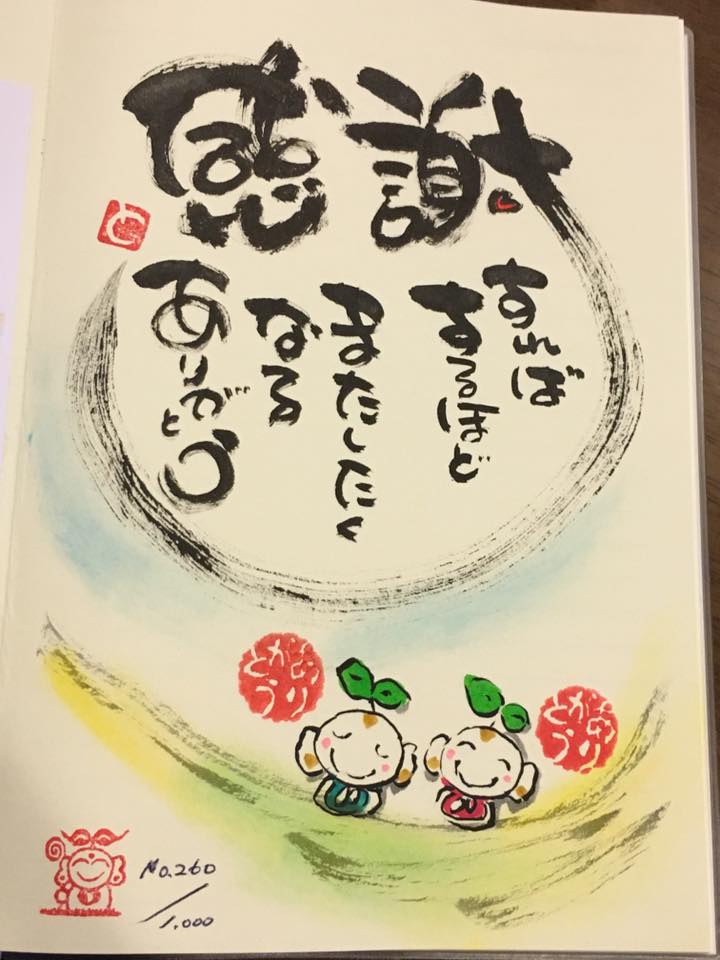 感謝
すれば
するほど
またしたく
なる
ありがとう
と
ありがとう
ありがとう
No.260
/1,000